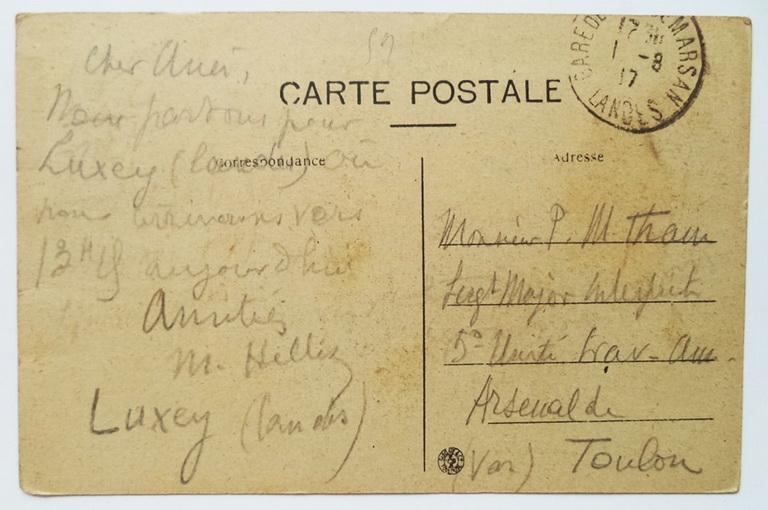 52
Cher Ami,
Nous partons pour
Luxey (Landes) où
nous arriverons vers
13H 15 aujourd'hui
Amitiés
M.
Luxey (Landes)
CARTE POSTALE
Correspondance
Adresse
GARE DE MARSAN
1 -8
17
LANDES
Monsieur P. M. Tham
Sergt Major Interprète
5e Unité Trav-
Arsenal de
(Var) Toulon